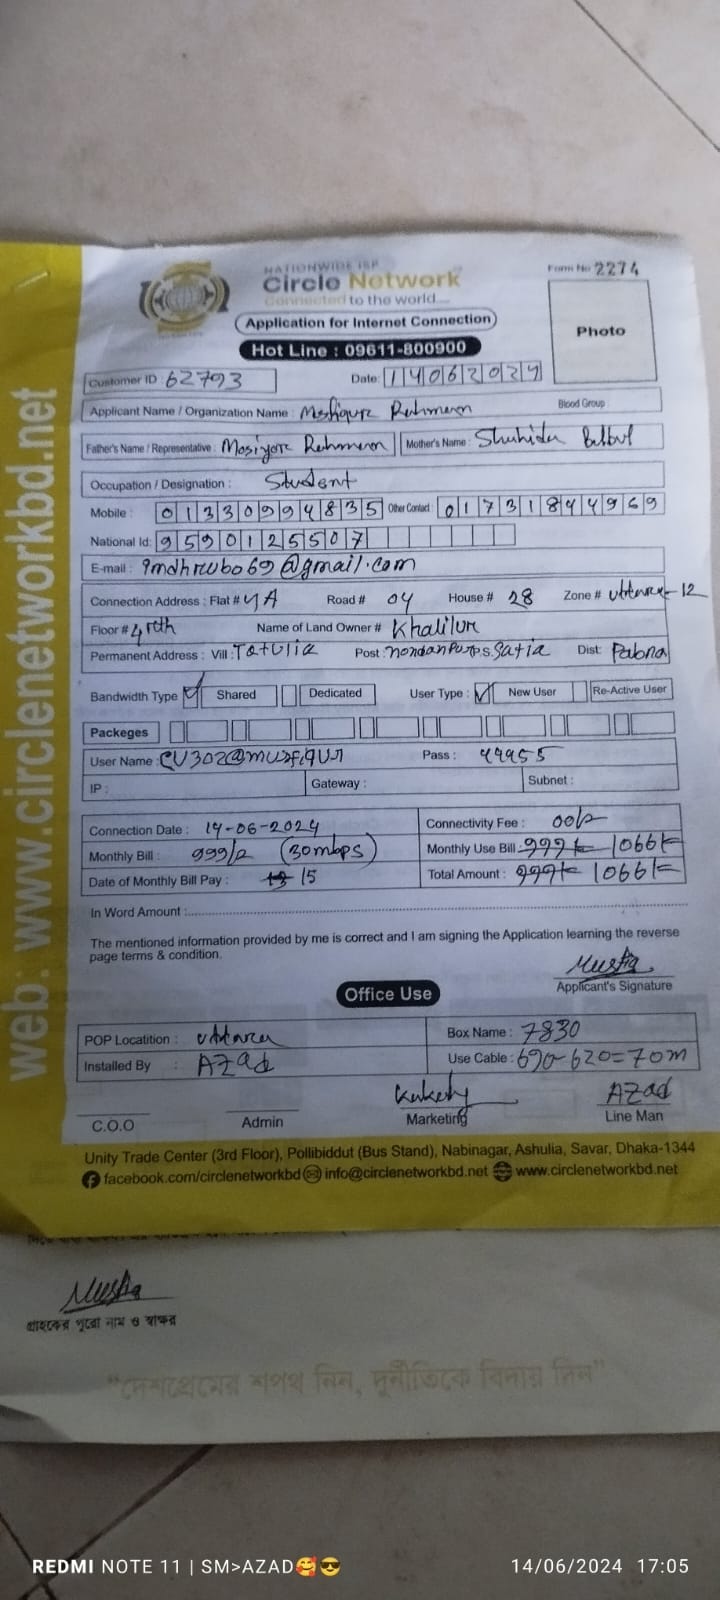 NATIONWIDE ISP
Circle Network
Connected to the world....
Form No 2274
Application for Internet Connection
Hot Line : 09611-800900
Photo
Customer ID : 62793
Date: 14062024
Applicant Name / Organization Name : Rahman
Blood Group :
Father's Name / Representative : Rahman Mother's Name :
Occupation / Designation : Student
Mobile : 01330994835 Other Contact : 01731844969
National Id: 9590125507
E-mail : @gmail.com
Connection Address : Flat # 4A Road # 04 House # 28 Zone # Uttara-12
Floor # 4 Name of Land Owner # Khalilur
Permanent Address : Vill : Post : Dist: Pabna
Bandwidth Type ✓ Shared Dedicated User Type : ✓ New User Re-Active User
Packeges
User Name : Pass : 49955
IP : Gateway : Subnet :
Connection Date : 14-06-2024 Connectivity Fee :
Monthly Bill : 999/= (30mbps) Monthly Use Bill : 999/= 1066/=
Date of Monthly Bill Pay : 15 Total Amount : 999/= 1066/=
In Word Amount :
The mentioned information provided by me is correct and I am signing the Application learning the reverse
page terms & condition.
Applicant's Signature
Office Use
POP Locatition : Uttara Box Name : 7830
Installed By : AZad Use Cable : 690-620=70m
AZad
C.O.O Admin Marketing Line Man
Unity Trade Center (3rd Floor), Pollibiddut (Bus Stand), Nabinagar, Ashulia, Savar, Dhaka-1344
facebook.com/circlenetworkbd info@circlenetworkbd.net www.circlenetworkbd.net
web: www.circlenetworkbd.net
গ্রাহকের পুরো নাম ও স্বাক্ষর
"দেশপ্রেমের শপথ নিন, দুর্নীতিকে বিদায় দিন"
REDMI NOTE 11 | SM>AZAD🥰😎
14/06/2024 17:05